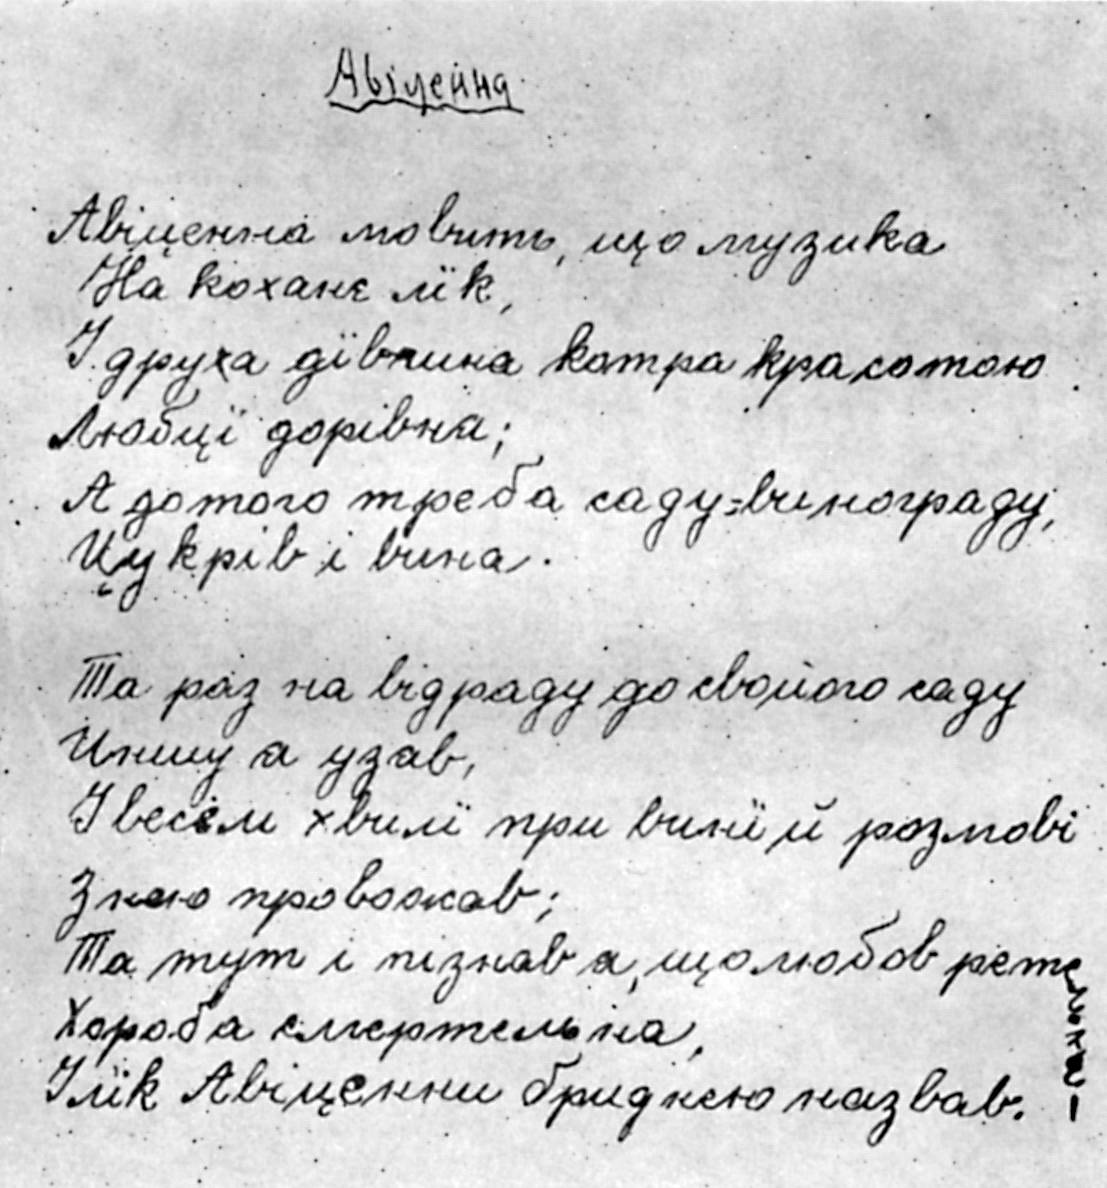 Авіценна
Авіценна мовить, що музика
На коханє лїк,
І друга дївчина котра красотою
Любцї дорівна;
А до того треба саду-винограду,
Цукрів і вина.
Та раз на відраду до свойого саду
Иншу я узяв,
І весїлі хвилї при винї й розмові
З нею провожав;
Та тут і пізнав я, що любов ретельная –
Хороба смертельна,
І лїк Авіценни бриднею назвав.